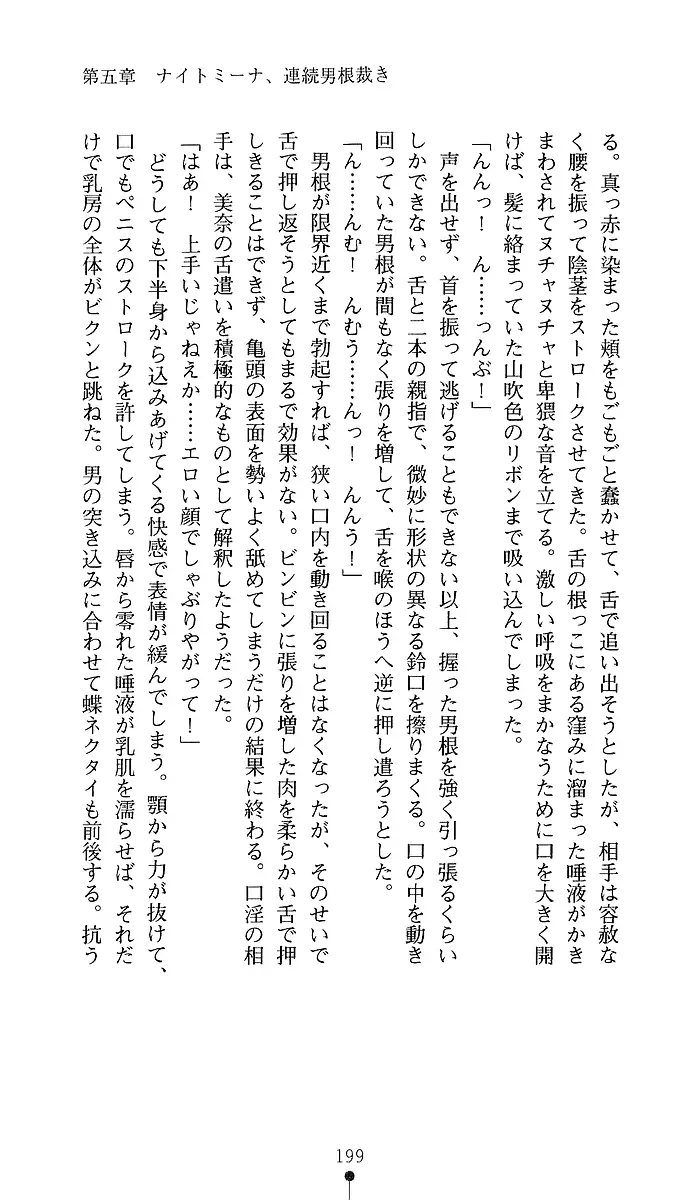 第五章　ナイトミーナ、連続男根裁き
る。真っ赤に染まった頬をもごもごと蠢かせて、舌で追い出そうとしたが、相手は容赦な
く腰を振って陰茎をストロークさせてきた。舌の根っこにある窪みに溜まった唾液がかき
まわされてヌチャヌチャと卑猥な音を立てる。激しい呼吸をまかなうために口を大きく開
けば、髪に絡まっていた山吹色のリボンまで吸い込んでしまった。
「んんっ！　ん……っんぶ！」
声を出せず、首を振って逃げることもできない以上、握った男根を強く引っ張るくらい
しかできない。舌と二本の親指で、微妙に形状の異なる鈴口を擦りまくる。口の中を動き
回っていた男根が間もなく張りを増して、舌を喉のほうへ逆に押し遣ろうとした。
「ん……んむ！　んむう……んっ！　んんう！」
男根が限界近くまで勃起すれば、狭い口内を動き回ることはなくなったが、そのせいで
舌で押し返そうとしてもまるで効果がない。ビンビンに張りを増した肉を柔らかい舌で押
しきることはできず、亀頭の表面を勢いよく舐めてしまうだけの結果に終わる。口淫の相
手は、美奈の舌遣いを積極的なものとして解釈したようだった。
「はあ！　上手いじゃねえか……エロい顔でしゃぶりやがって！」
どうしても下半身から込みあげてくる快感で表情が緩んでしまう。顎から力が抜けて、
口でもペニスのストロークを許してしまう。唇から零れた唾液が乳肌を濡らせば、それだ
けで乳房の全体がビクンと跳ねた。男の突き込みに合わせて蝶ネクタイも前後する。抗う
199